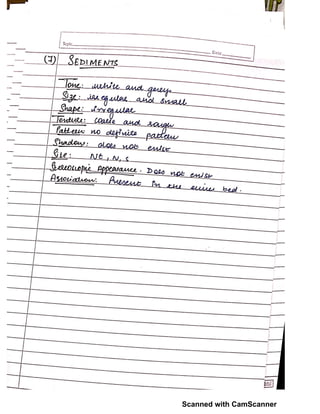 Date
(7) SEDIMENTS
Tone: white and grey
Size: irregular and small
Shape: irregular
Texture: coarse and rough
Pattern no definite pattern
Shadow: does not exist
Site: Nt, N, S
Stereoscopic appearance. Does not exist
Association: Present in the river bed.
Scanned with CamScanner